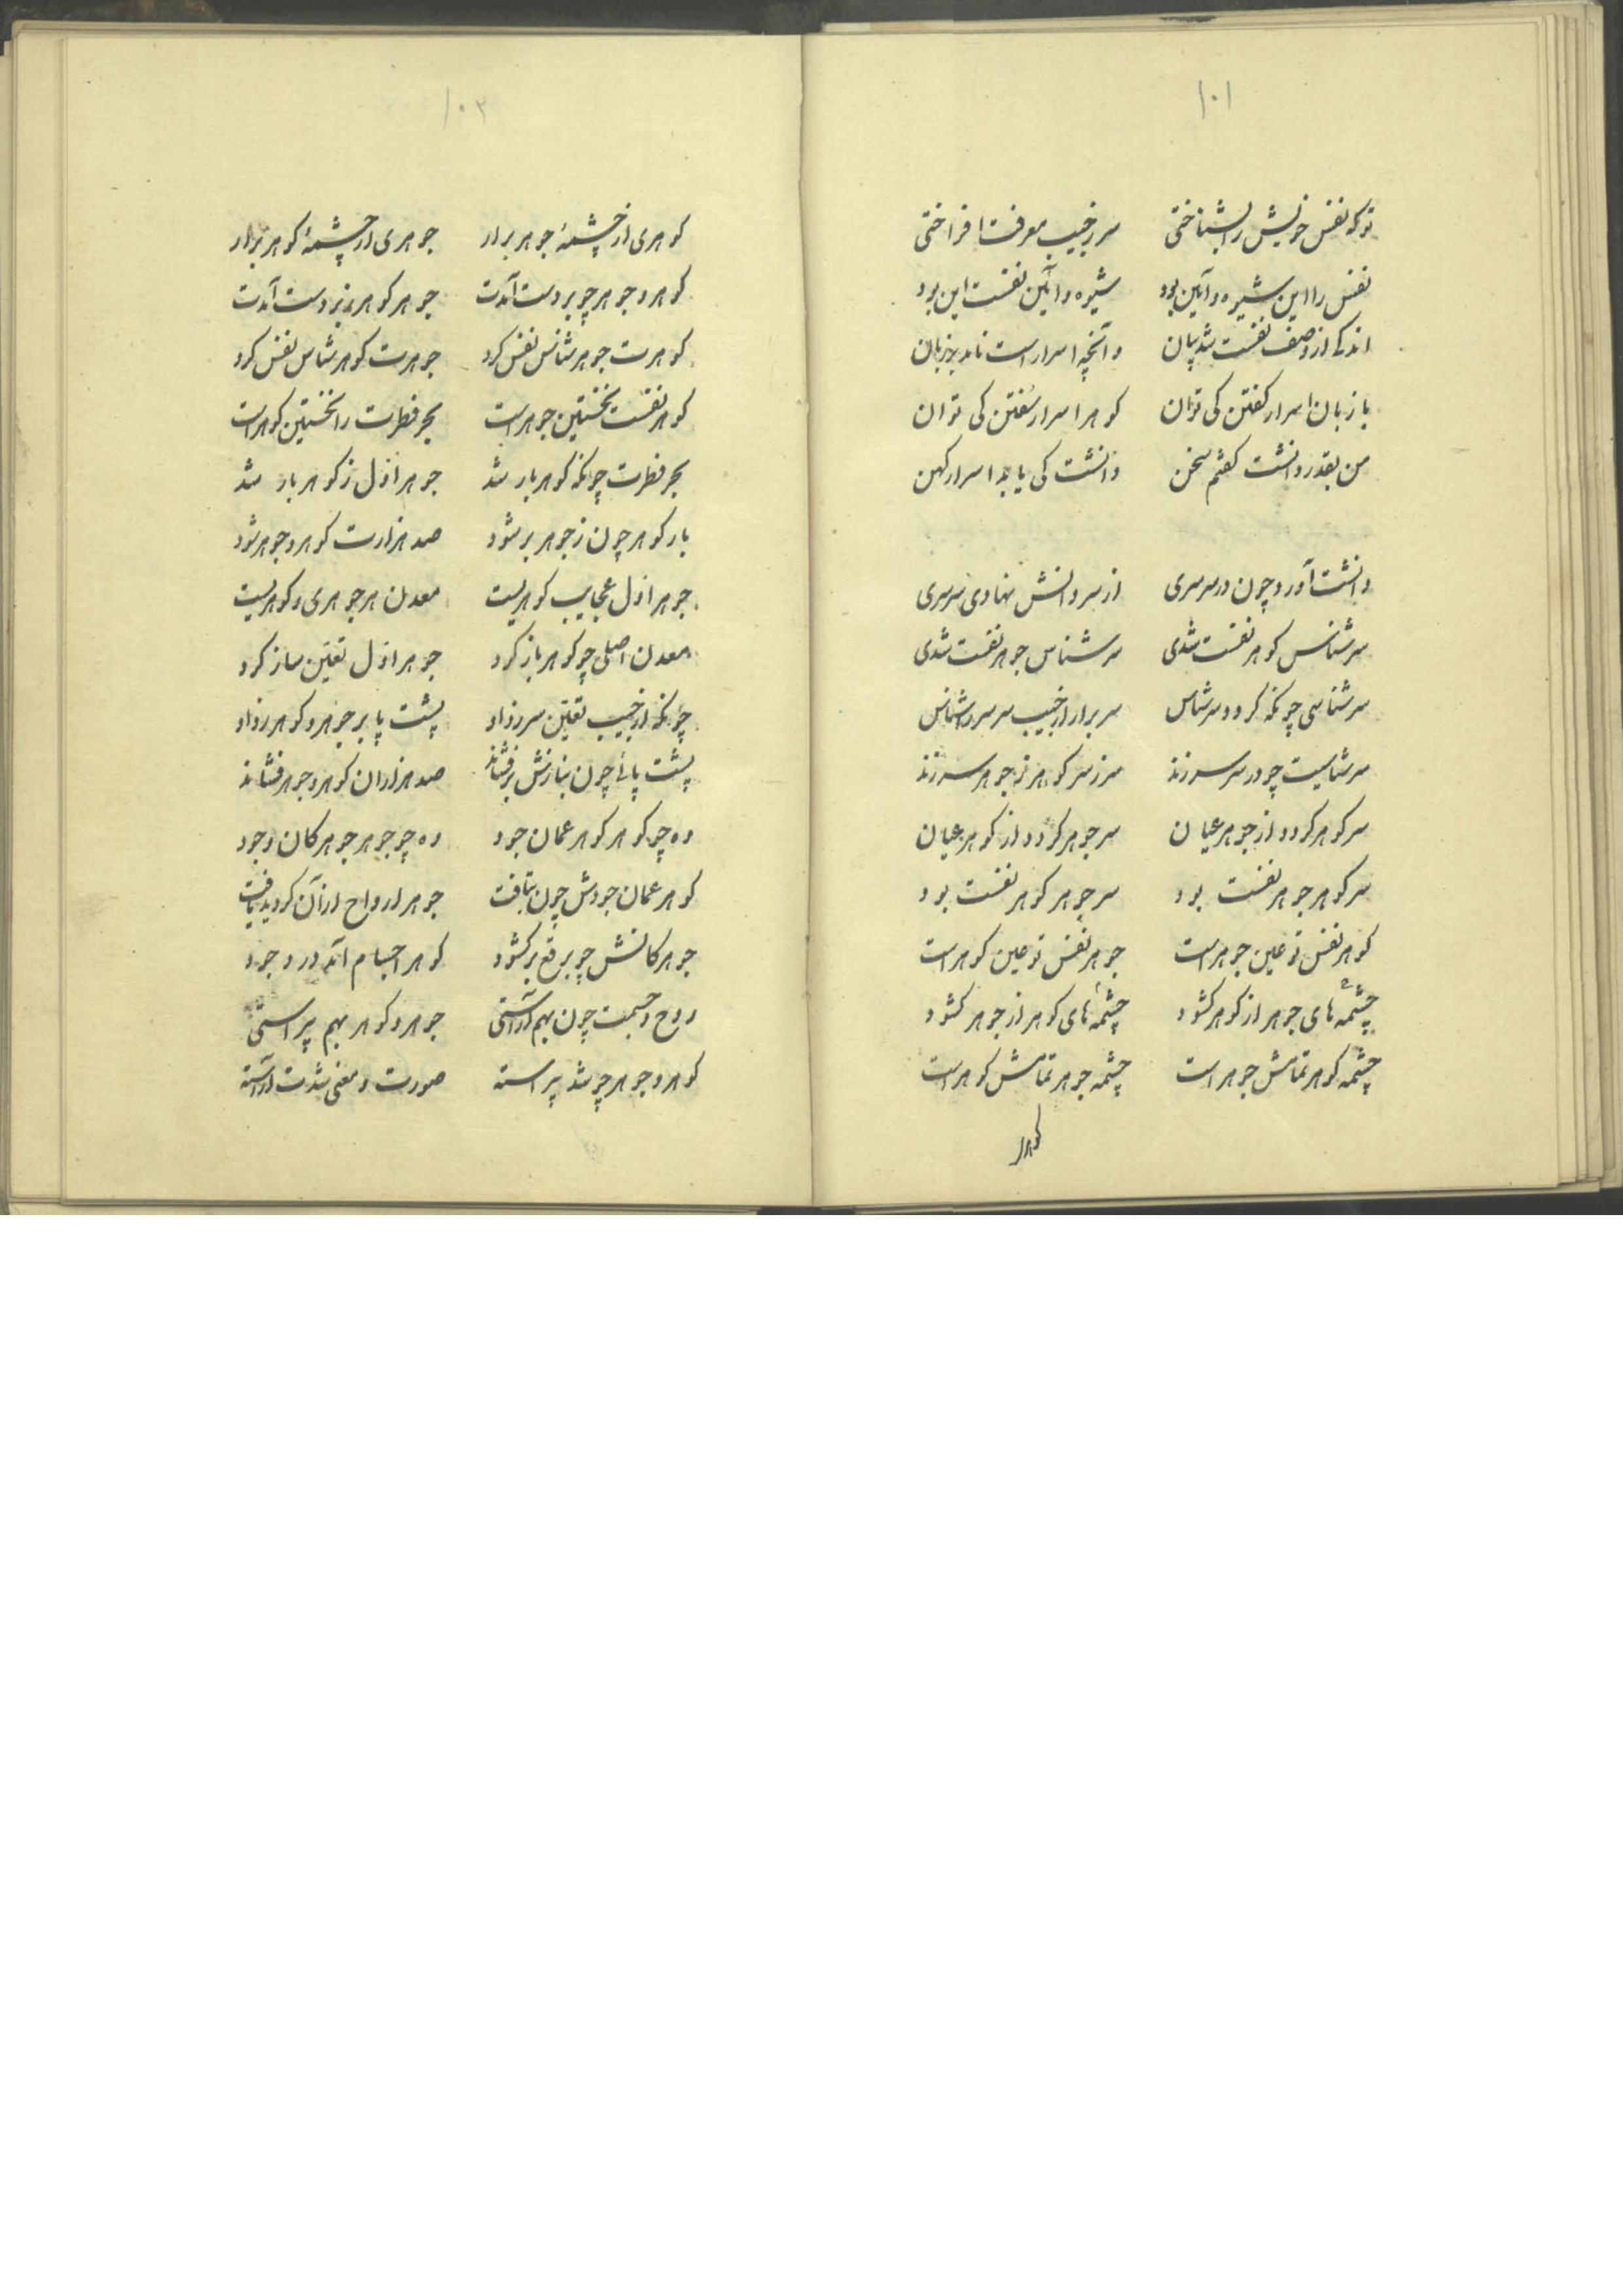 ۱۰۱
تو که نفس خویش را بشناختی سر ز جیب معرفت افراختی
نفس را این شیوه و آیین بود شیوه و آیین نفست این بود
اندکی از وصف نفست شد بیان وآنچه اسرار است ناید بر زبان
با زبان اسرار گفتن کی توان گوهر اسرار سفتن کی توان
من بقدر دانشت گفتم سخن دانشت کی یابد اسرار کهن
دانشت آورد چون در سرسری از سر دانش نهادی سرسری
سرشناس گوهر نفست شدی سرشناس جوهر نفست شدی
سرشناسی چونکه گردد سرشناس سر برار از جیب سر سرشناس
سرشناسیت چو در سر سر زند سر ز سر گوهر ز جوهر سر زند
سر گوهر گردد از جوهر عیان سر جوهر گردد از گوهر عیان
سر گوهر جوهر نفست بود سر جوهر گوهر نفست بود
گوهر نفس تو عین جوهر است جوهر نفس تو عین گوهر است
چشمه‌های جوهر از گوهر گشود چشمه‌های گوهر از جوهر گشود
چشمه گوهر تمامش جوهر است چشمه جوهر تمامش گوهر است
۱۰۲
گوهری از چشمهٔ جوهر برار جوهری از چشمهٔ گوهر برار
گوهر و جوهر چو بر دست آمدت جوهر گوهر بر دست آمدت
گوهرت جوهر شناس نفس کرد جوهرت گوهر شناس نفس کرد
گوهر نفست نخستین جوهر است بحر فطرت را نخستین گوهر است
بحر فطرت چونکه گوهر بار شد جوهر اول ز گوهر بار شد
بار گوهر چون ز جوهر بر شود صد هزارت گوهر و جوهر شود
جوهر اول عجایب گوهریست معدن هر جوهری و گوهریست
معدن اصلی چو گوهر باز کرد جوهر اول تعین ساز کرد
چونکه از جیب تعین سر زد او پشت پا بر جوهر و گوهر زد او
پشت پائی چون بنازش برفشاند صد هزاران گوهر و جوهر فشاند
وه چو گوهر گوهر عمان جود وه چو جوهر جوهر کان وجود
گوهر عمان جودش چون بتافت جوهر ارواح از آن گردید یافت
جوهر کانش چو برقع برگشود گوهر اجسام آمد در وجود
روح و جسمت چون بهم آراستی جوهر و گوهر بهم پیراستی
گوهر و جوهر چو شد پیراسته صورت و معنی شدت آراسته